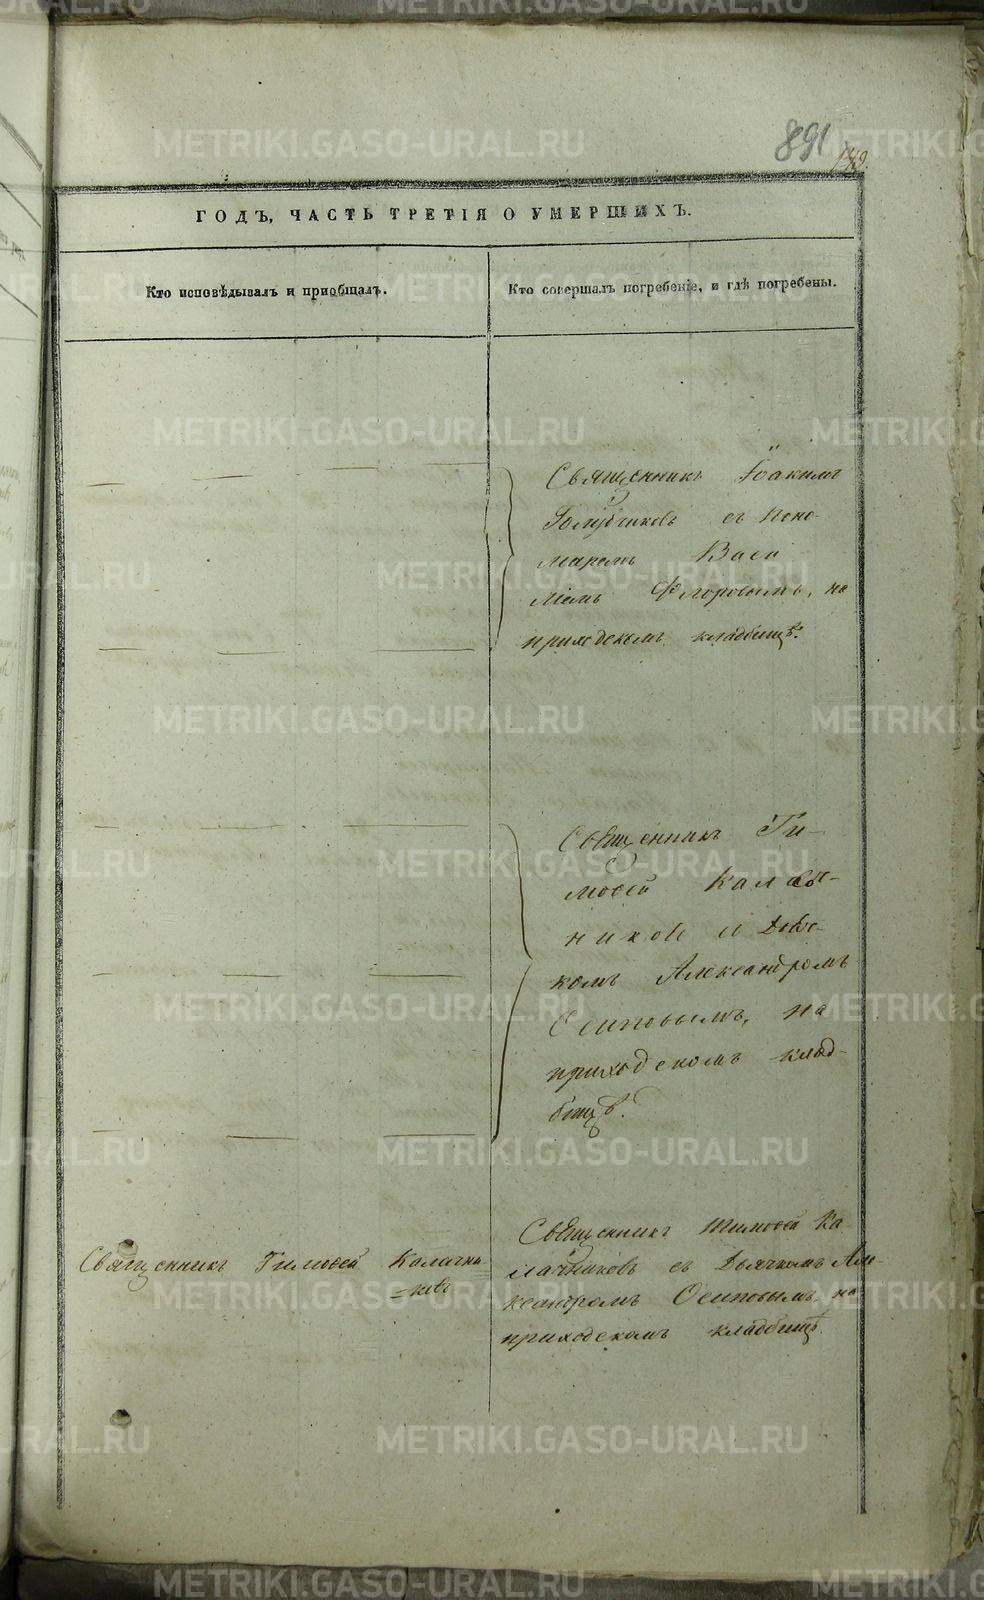 891
149.
ГОДЪ, ЧАСТЬ ТРЕТІЯ О УМЕРШИХЪ.
Кто исповѣдывалъ и пріобщалъ.
Кто совершалъ погребеніе, и гдѣ погребены.
Священникъ Іоакимъ
Голубчиковъ съ Поно-
маремъ Васи
ліемъ Флоровымъ, на
приходскомъ кладбищѣ.
Священникъ Ти-
моѳей
и
комъ Александромъ
Осиповымъ, на
приходскомъ клад-
бищѣ.
Священникъ Тимоѳей Калачни
=ковъ
Священникъ Тимоѳей Ка
лачниковъ съ Дьячкомъ Але-
ксандромъ Осиповымъ, на
приходскомъ кладбищѣ.
METRIKI.GASO-URAL.RU